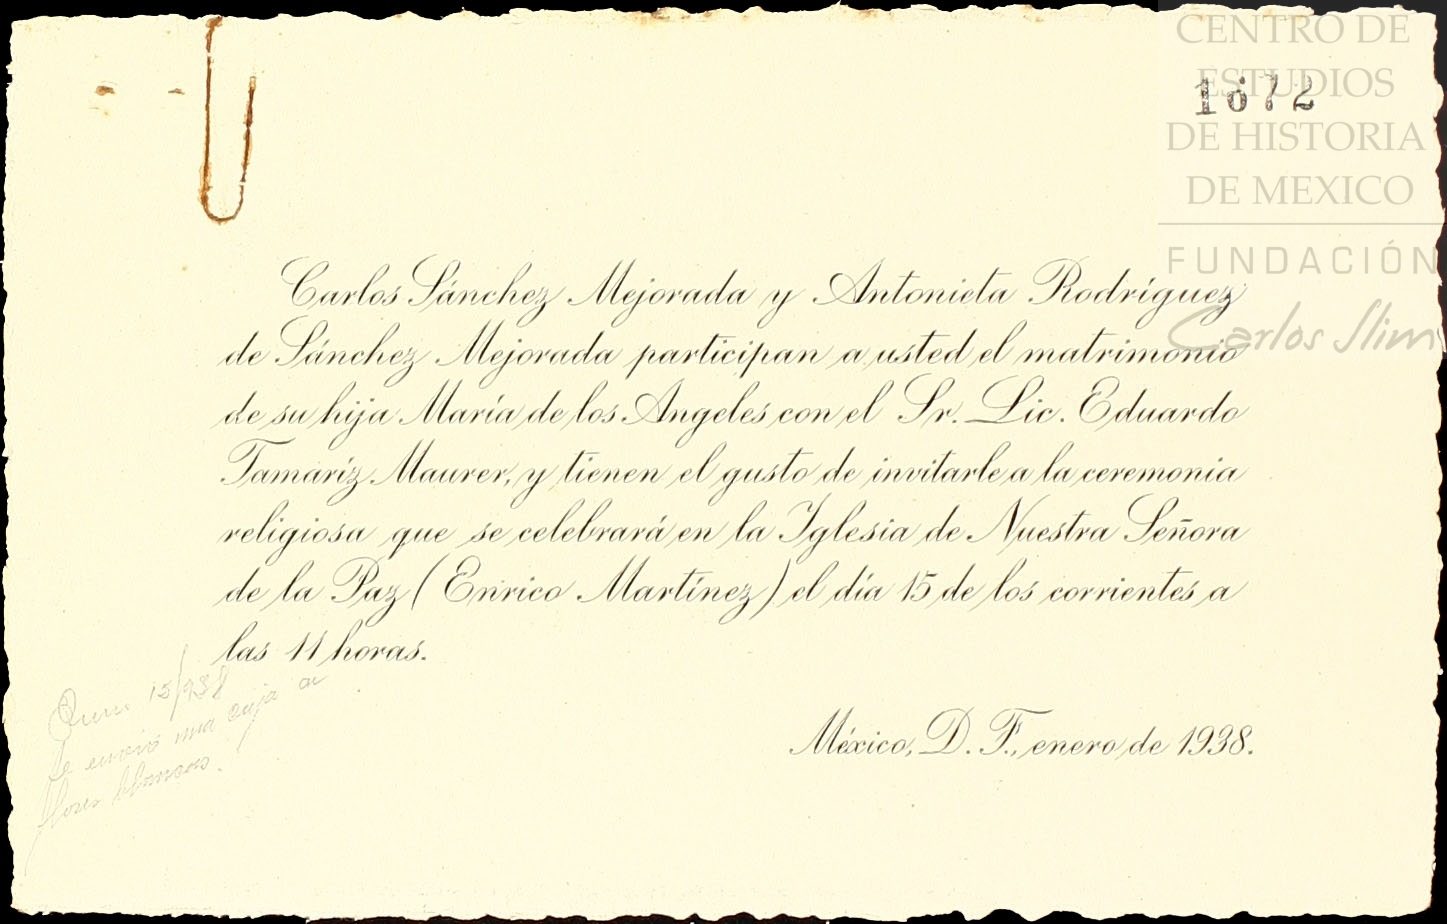 CENTRO DE
ESTUDIOS
DE HISTORIA
DE MEXICO
FUNDACIÓN
Carlos Slim
1872
Carlos Sánchez Mejorada y Antonieta Rodríguez
de Sánchez Mejorada participan a usted el matrimonio
de su hija María de los Angeles con el Sr. Lic. Eduardo
Tamaríz Maurer, y tienen el gusto de invitarle a la ceremonia
religiosa que se celebrará en la Iglesia de Nuestra Señora
de la Paz (Enrico Martínez) el día 15 de los corrientes a
las 11 horas.
México, D. F., enero de 1938.
15/938
Se envió una caja de
flores blancas.